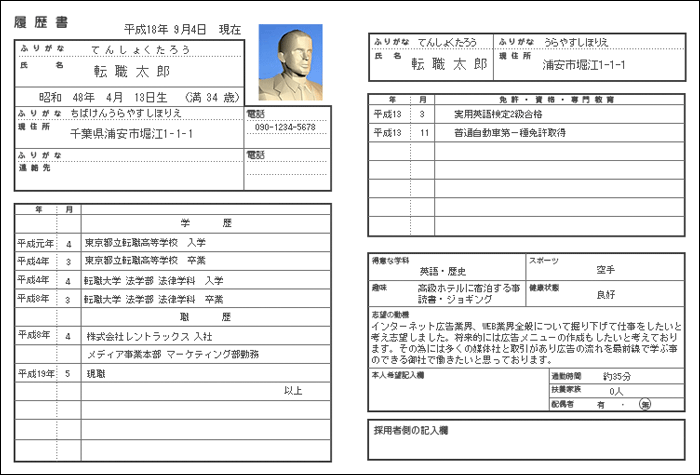 履歴書
平成18年 9月4日 現在
ふりがな てんしょくたろう
氏名 転職太郎
昭和 48年 4月 13日生 (満 34 歳)
ふりがな ちばけんうらやすしほりえ 電話
現住所 千葉県浦安市堀江1-1-1 090-1234-5678
ふりがな 電話
連絡先
年 月
学歴
平成元年 4 東京都立転職高等学校 入学
平成4年 3 東京都立転職高等学校 卒業
平成4年 4 転職大学 法学部 法律学科 入学
平成8年 3 転職大学 法学部 法律学科 卒業
職歴
平成8年 4 株式会社レントラックス 入社
メディア事業本部 マーケティング部勤務
平成19年 5 現職
以上
ふりがな てんしょくたろう ふりがな うらやすしほりえ
氏名 転職太郎 現住所 浦安市堀江1-1-1
年 月 免許・資格・専門教育
平成13 3 実用英語検定2級合格
平成13 11 普通自動車第一種免許取得
得意な学科 英語・歴史 スポーツ 空手
趣味 高級ホテルに宿泊する事 健康状態 良好
読書・ジョギング
志望の動機
インターネット広告業界、WEB業界全般について掘り下げて仕事をしたいと
考え志望しました。将来的には広告メニューの作成もしたいと考えており
ます。その為には多くの媒体社と取引があり広告の流れを最前線で学ぶ事
のできる御社で働きたいと思っております。
本人希望記入欄 通勤時間 約35分
扶養家族 0人
配偶者 有 ・ 無
採用者側の記入欄